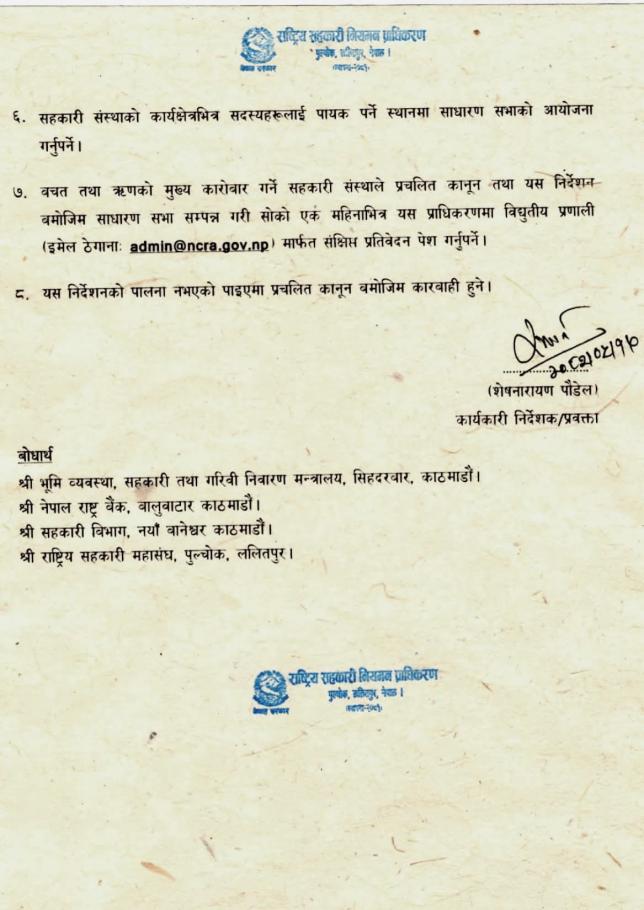 राष्ट्रिय सहकारी नियमन प्राधिकरण
पुल्चोक, ललितपुर, नेपाल ।
नेपाल सरकार
६. सहकारी संस्थाको कार्यक्षेत्रभित्र सदस्यहरूलाई पायक पर्ने स्थानमा साधारण सभाको आयोजना
गर्नुपर्ने।
७. बचत तथा ऋणको मुख्य कारोबार गर्ने सहकारी संस्थाले प्रचलित कानून तथा यस निर्देशन
बमोजिम साधारण सभा सम्पन्न गरी सोको एक महिनाभित्र यस प्राधिकरणमा विद्युतीय प्रणाली
(इमेल ठेगानाः admin@ncra.gov.np) मार्फत संक्षिप्त प्रतिवेदन पेश गर्नुपर्ने।
८. यस निर्देशनको पालना नभएको पाइएमा प्रचलित कानून बमोजिम कारबाही हुने।
(शेषनारायण पौडेल)
कार्यकारी निर्देशक/प्रवक्ता
बोधार्थ
श्री भूमि व्यवस्था, सहकारी तथा गरिवी निवारण मन्त्रालय, सिंहदरबार, काठमाडौं।
श्री नेपाल राष्ट्र बैंक, बालुवाटार काठमाडौं।
श्री सहकारी विभाग, नयाँ बानेश्वर काठमाडौं।
श्री राष्ट्रिय सहकारी महासंघ, पुल्चोक, ललितपुर।
राष्ट्रिय सहकारी नियमन प्राधिकरण
पुल्चोक, ललितपुर, नेपाल ।
नेपाल सरकार